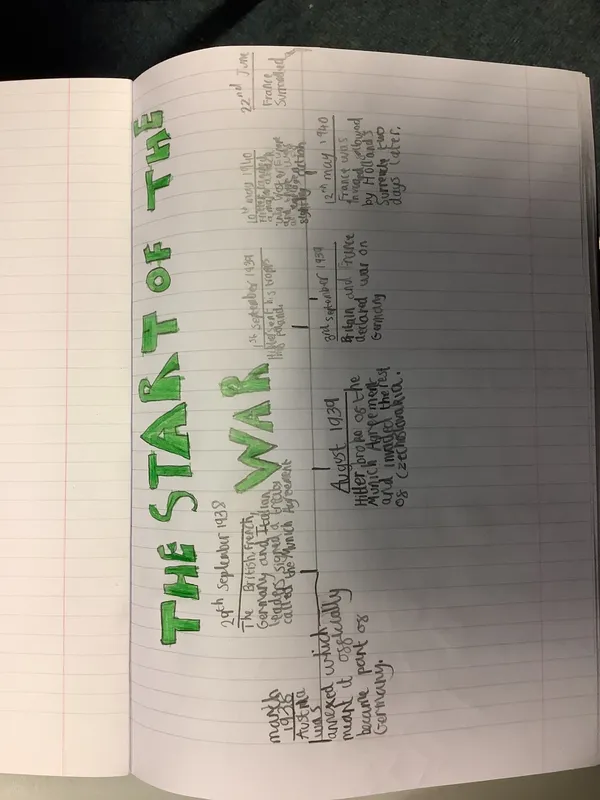 THE START OF THE
WAR
march
1938
Austria
was
annexed which
meant it offically
became part of
Germany.
29th September 1938
The British, French,
Germany and Italian
leaders signed a treaty
called the Munich Agreement
August 1939
Hitler broke of the
Munich Agreement
and invaded the rest
of Czechoslovakia.
1st September 1939
Hitler sent his troops
into Poland.
3rd September 1939
Britain and France
declared war on
Germany
10th may 1940
12th may 1940
France was
invaded, followed
by Holland's
surrender two
days later.
22nd June
France
Surrendered